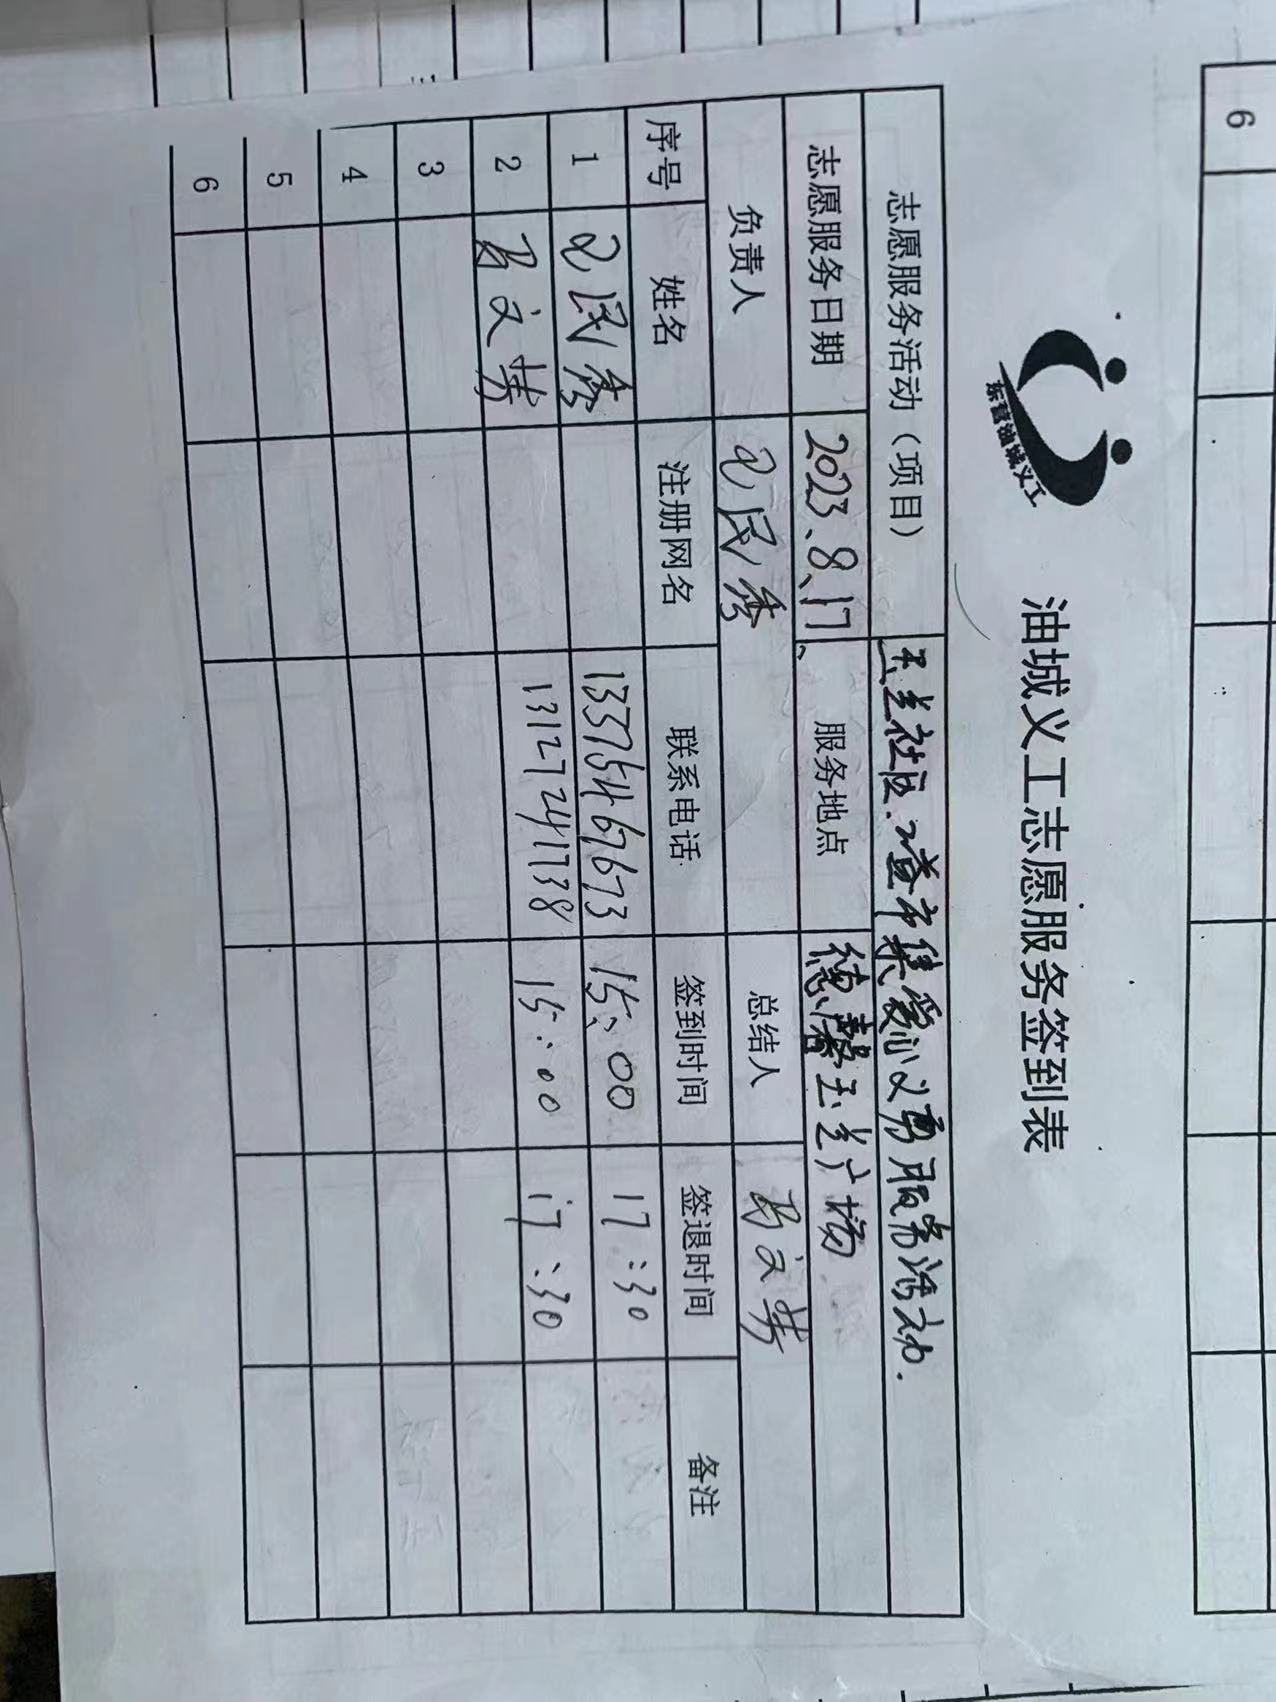 东营油城义工
油城义工志愿服务签到表
志愿服务活动（项目） 玉兰社区.益市集爱心义剪服务活动.
志愿服务日期 2023、8、17、 服务地点 德馨玉兰广场
负责人 民秀 总结人 文
序号 姓名 注册网名 联系电话 签到时间 签退时间 备注
1 民秀 13375467673 15:00 17:30
2 文 13127241738 15:00 17:30
3
4
5
6
6